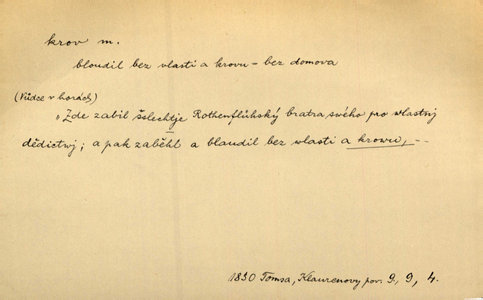 krov m.
bloudil bez vlasti a krovu - bez domova
(Vůdce v horách)
"Zde zabil šlechtje Rothenflühský bratra swého pro wlastnj
dědictwj; a pak zaběhl a blaudil bez wlasti a krowu, --
1830 Tomsa, Klaurenovy pov. 9, 9, 4.